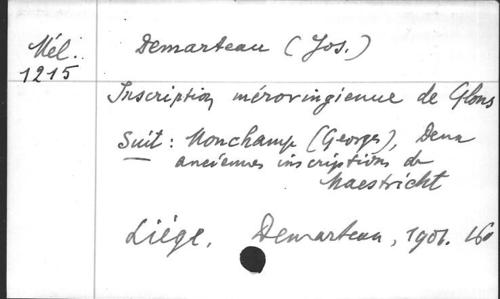 Mél.
1215
Demarteau (Jos.)
Inscription mérovingienne de Glons
Suit: Monchamp (Georges), Deux
anciennes inscriptions de
Maestricht
Liége, Demarteau, 1901. 16°